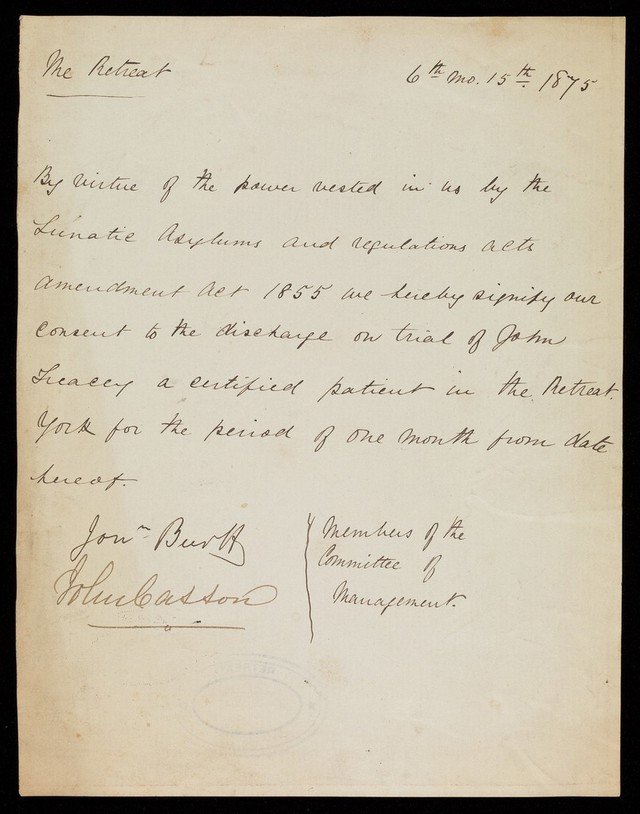 The Retreat
6th mo. 15th 1875
By virtue of the power vested in us by the
Lunatic Asylums and regulations acts
amendment act 1855 we hereby signify our
consent to the discharge on trial of John
Treacey a certified patient in the Retreat.
York for the period of one month from date
hereof.
Jonn Burtt
John Casson
Members of the
Committee of
Management.